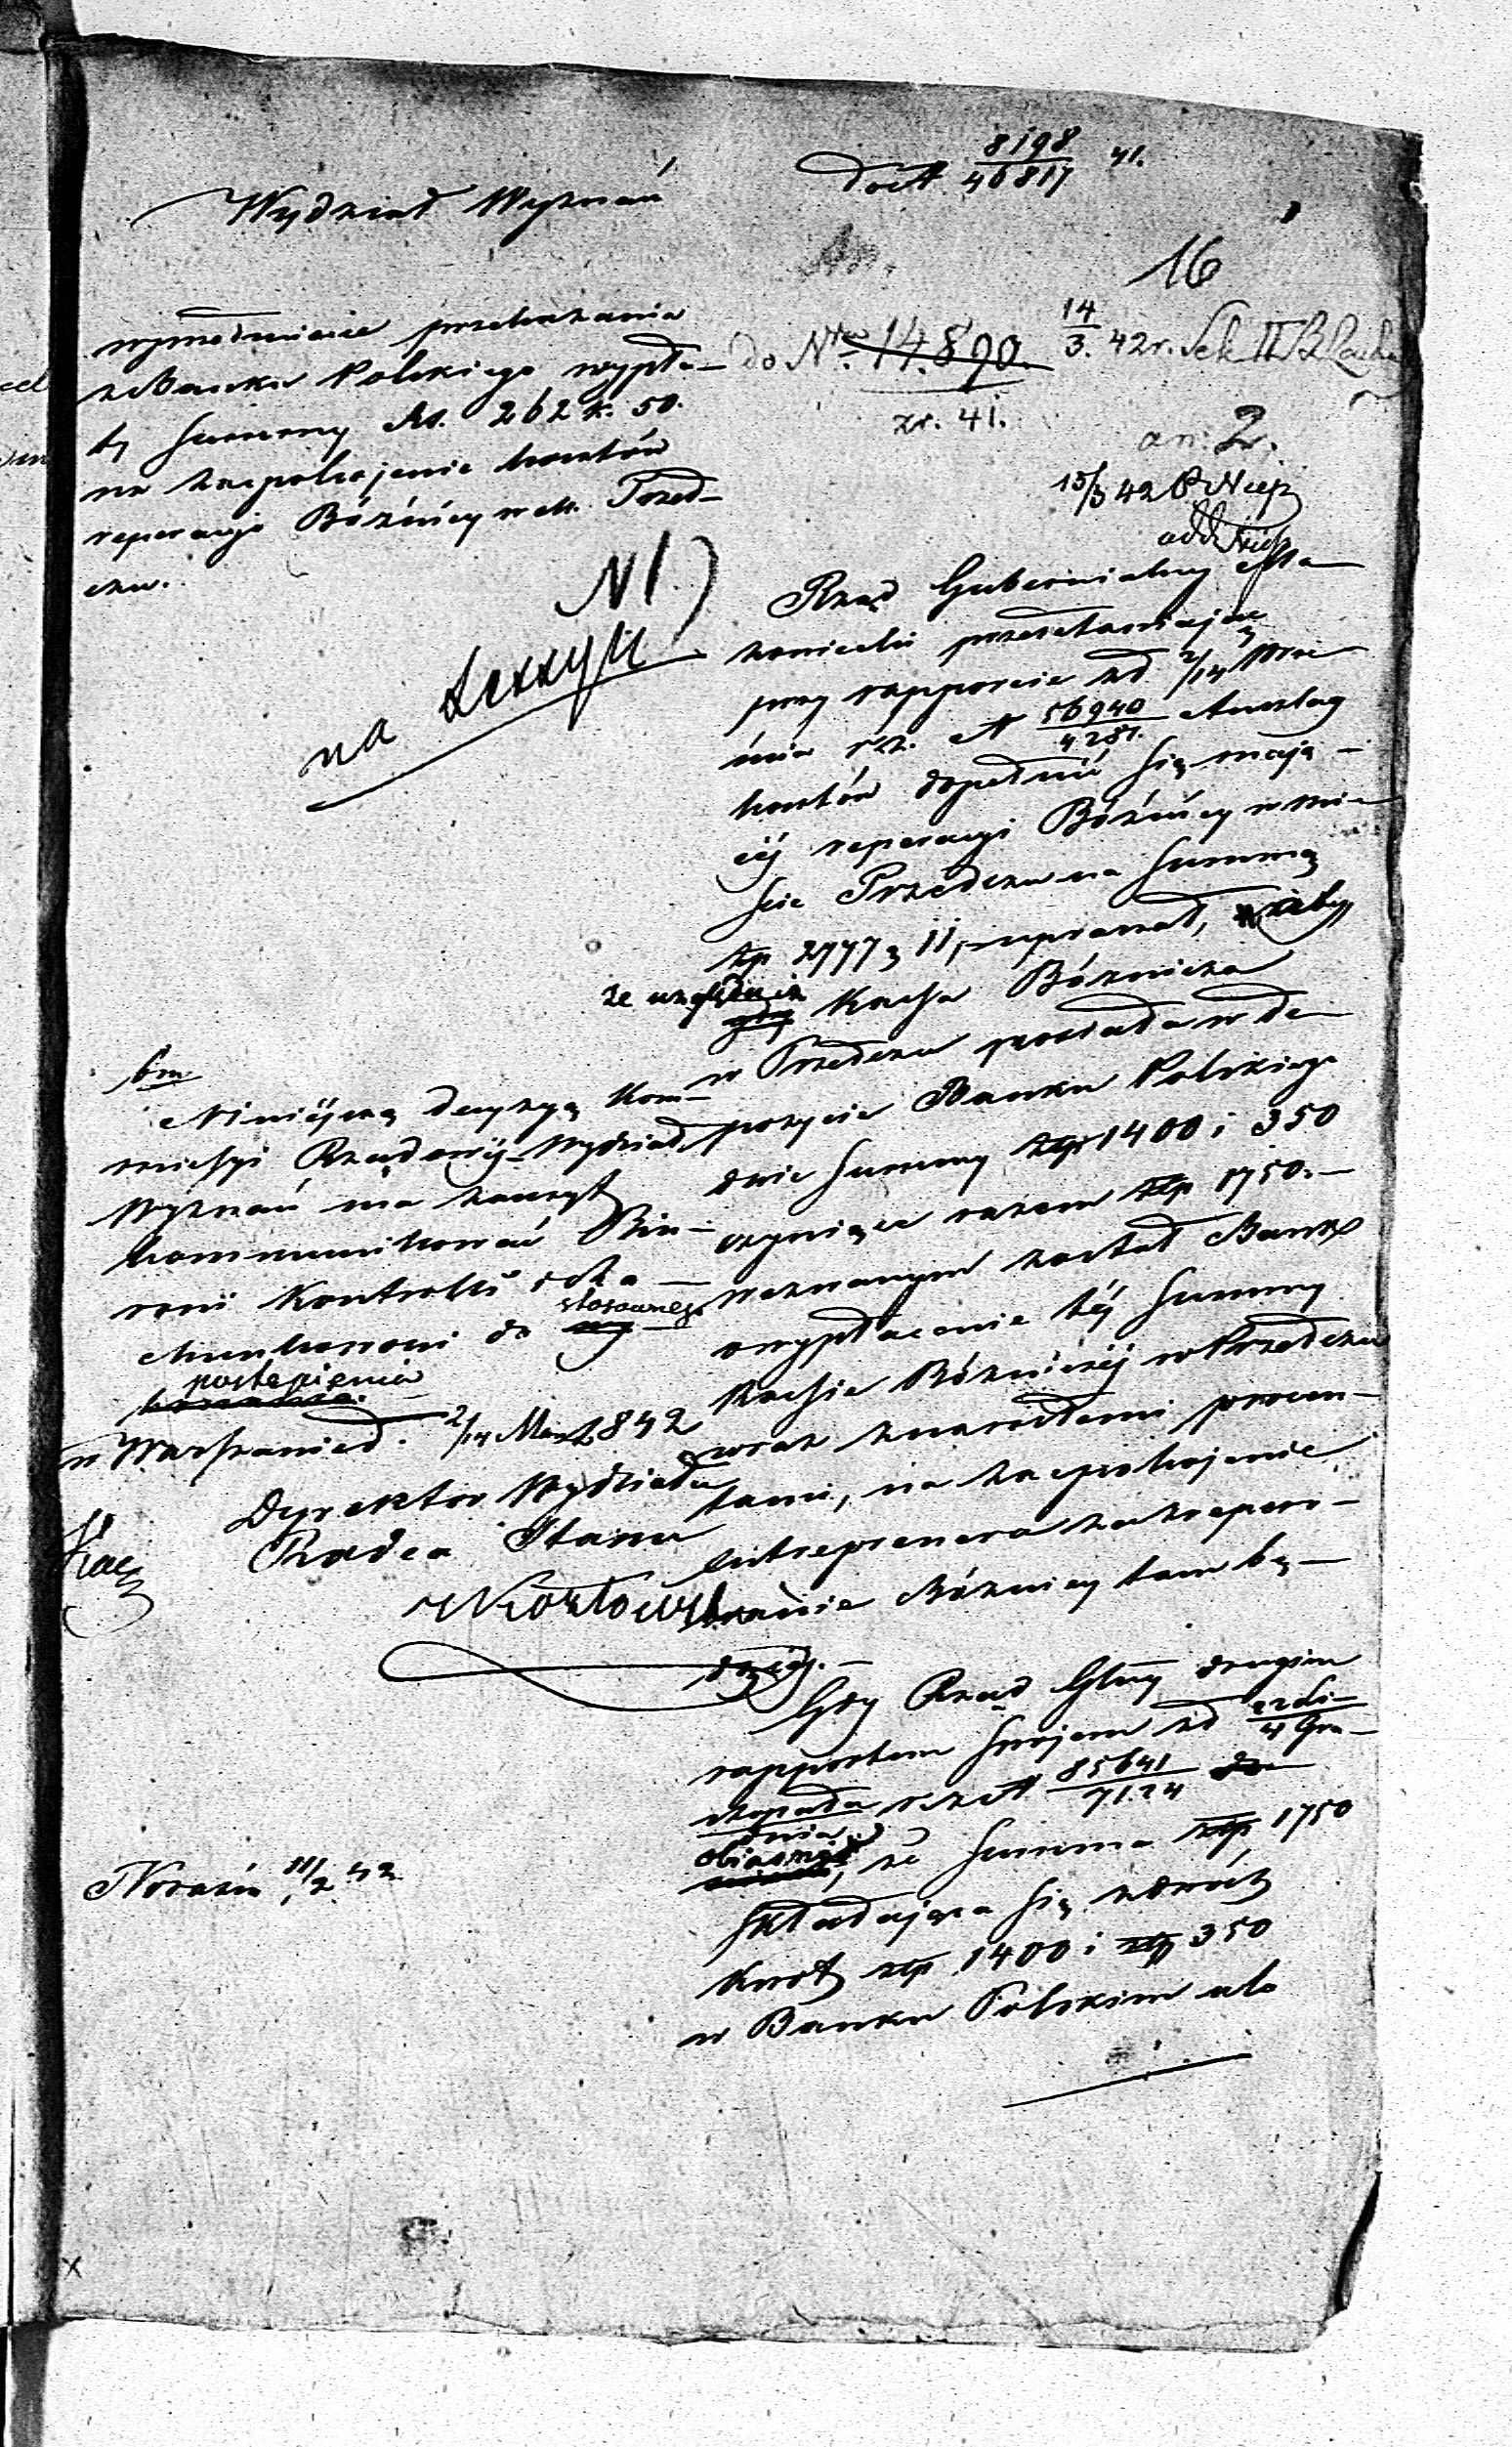 Wydział Wyznań
do N 8198/46817 41.
16
wyjednanie przekazania
z Banku Polskiego wypła-
ty Summy Rs. 262 k. 50.
na zaspokojenie kosztów
reperacyi Bóżnicy w m. Przed-
czu.
do Nru 14.890.
zr. 41.
14/3. 42 r. Sek II
an: 2.
15/3 42
N 1
na
Rząd Gubernialny Ma-
zowiecki przedstawiając
przy rapporcie z d 2/14 Wrze-
śnia r. z. N 56940/4281. Anszlag
kosztów dopełnić się mają-
céj reperacyi Bóźnicy w mie-
ście Przedczu na Summę
złp 2777 g 11, upraszał, ażeby
ze względu iż
gdy Kassa Bóżnicza
w Przedczu posiada w de-
pozycie Banku Polskiego
dwie Summy złp 1400 i 350
czyniące razem złp 1750.—
wezwanym został Bank
o wypłacenie téj Summy
Kassie Bóżniczéj w Przedczu
wraz z narosłemi procen-
tami, na zaspokojenie
entreprenera za zrepero-
wanie Bóżnicy tam bę-
dącéj.—
Gdy Rząd Glny drugim
rapportem swojem z d 22 Li-/4 Gru-
stopada/dnia r. z. N 85641/7124
obiasnił, że Summa złp 1750
składająca się z dwóch
kwot złp 1400 i złp 350
w Banku Polskim ulo
bm.
Niniéjszą decyzyą Kom-
missyi Rządowéj Wydział
Wyznań ma zaszczyt
kommunikować Biu-
rowi Kontrolli i
Rachunkowi do stosownego
postąpienia
w Warszawie d. 2/14 Mar. 1842
Dyrektor Wydziału
Radca Stanu
Kozłowski
11/2 42
x